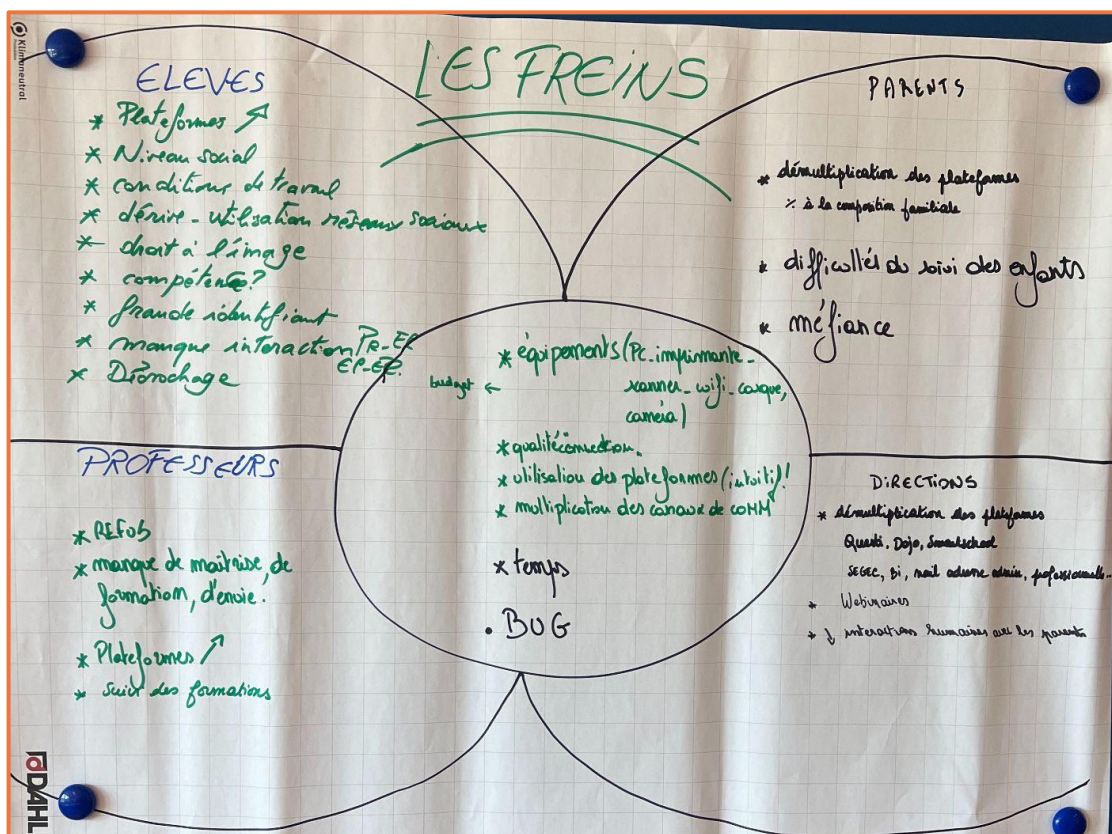 Klimaneutral
LES FREINS
ELEVES
* Plateformes ↗
* Niveau social
* conditions de travail
* dérive - utilisation réseaux sociaux
* droit à l'image
* compétence?
* fraude identifiant
* manque interaction PR-EL
* Décrochage
PARENTS
* démultiplication des plateformes
% à la composition familiale
* difficultés du suivi des enfants
* méfiance
* équipements (PC-imprimante-
scanner-wifi-casque,
caméra)
budget ←
* qualité connection.
* utilisation des plateformes (intuitif)!
* multiplication des canaux de coMM
* temps
. BUG
PROFESSEURS
* REFUS
* manque de maitrise, de
formation, d'envie.
* Plateformes ↗
* Suivi des formations
DiRECTIONS
* démultiplication des plateformes
Questi, Dojo, Smartschool
SEGEC, Bi, mail adresse admin, professionnelle...
* Webinaires
* ↓ interactions humaines avec les parents
DAHLE